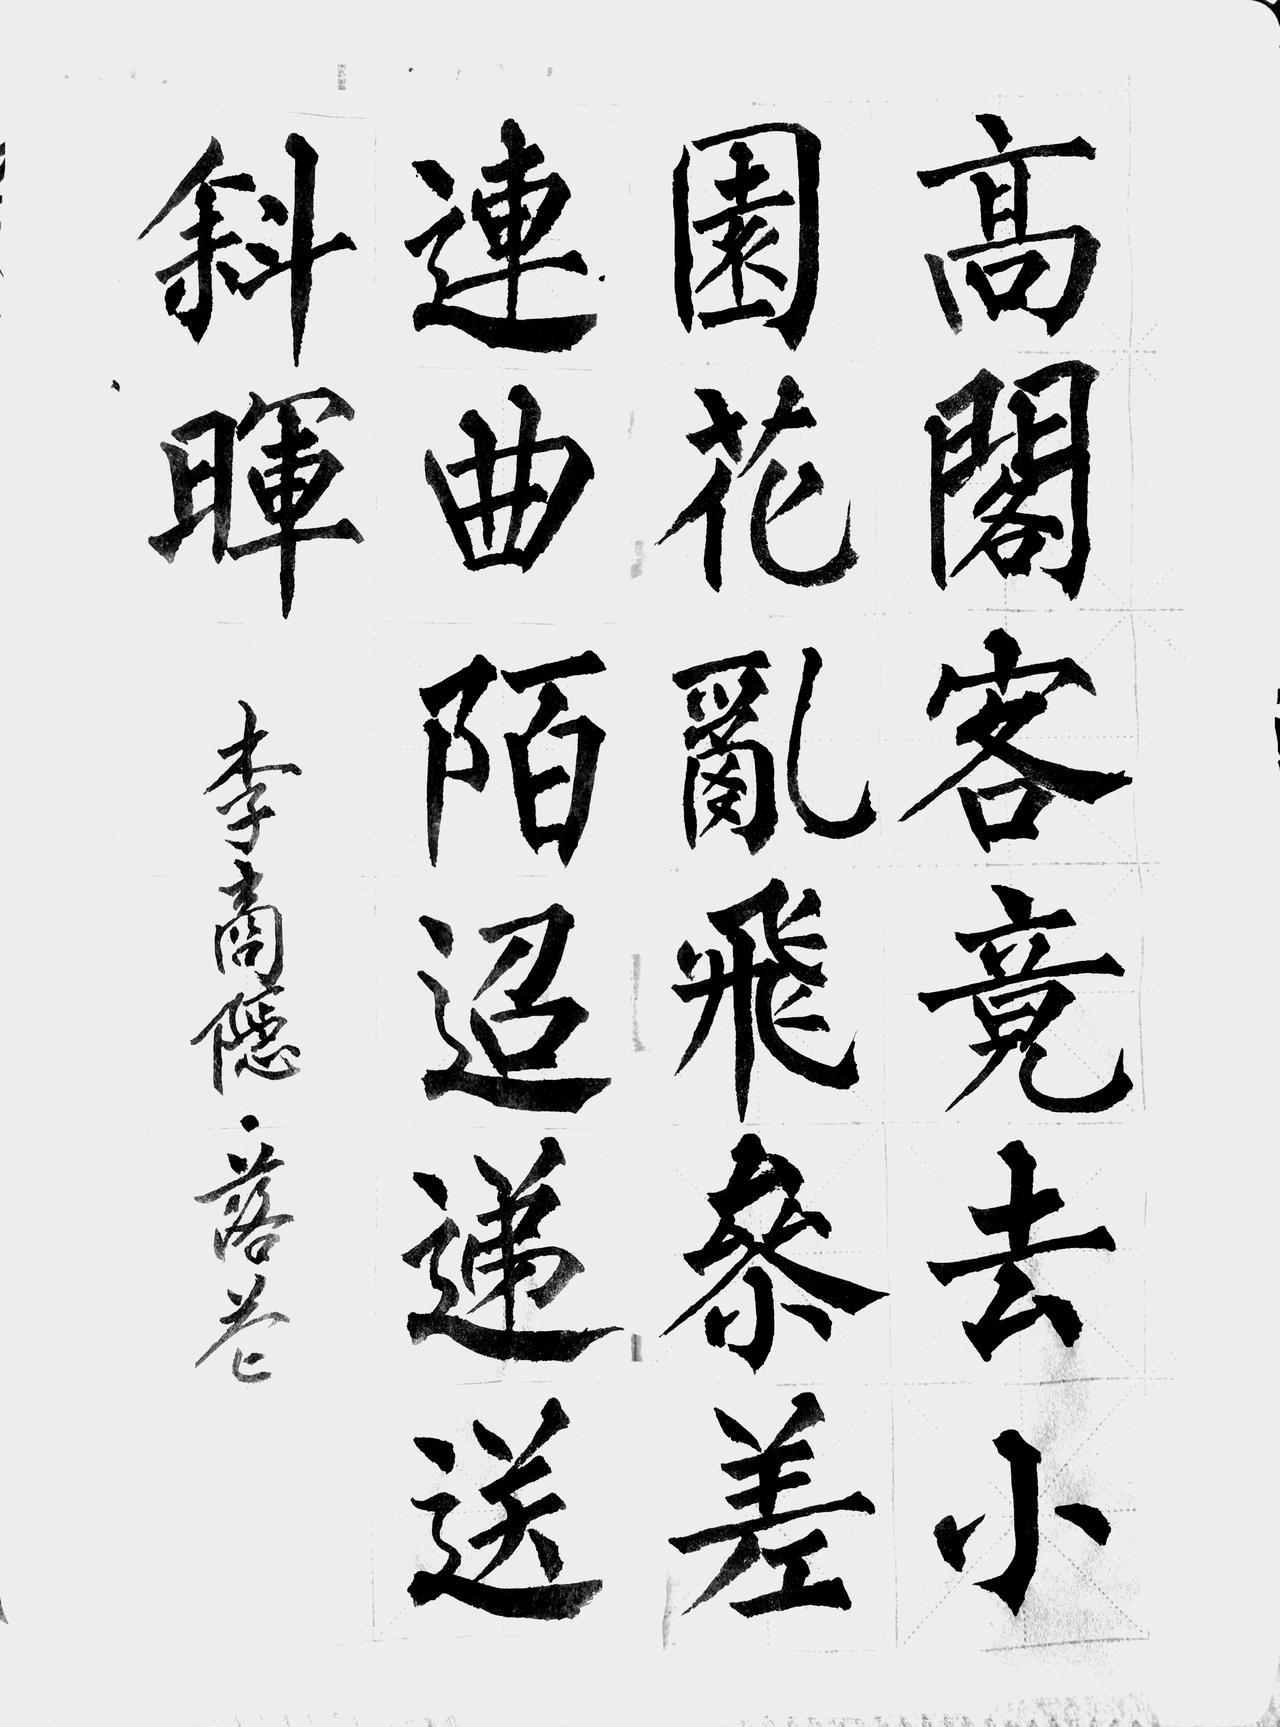 高閣客竟去小
園花亂飛參差
連曲陌迢递送
斜暉
李商隱·落花